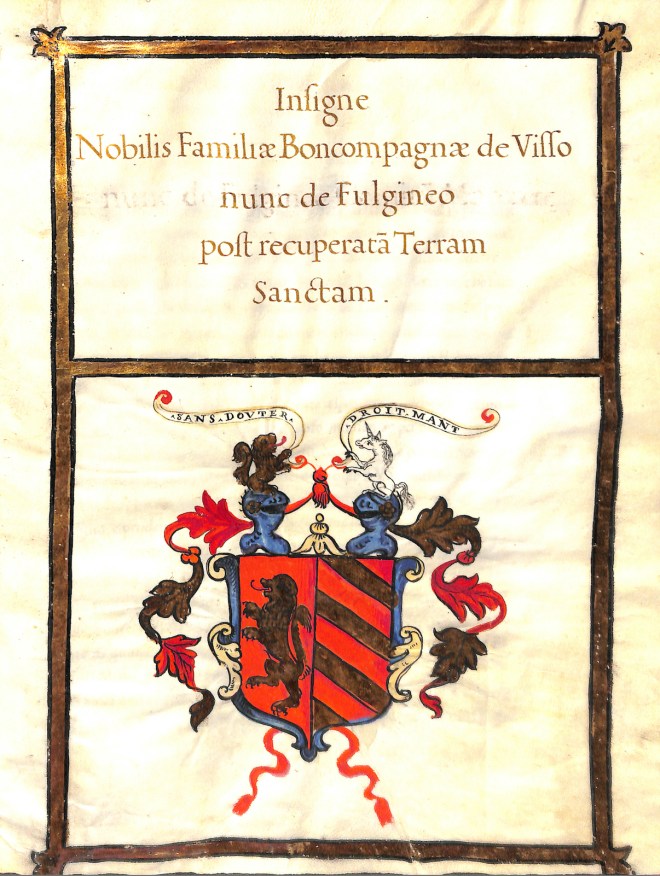 Inſigne
Nobilis Familiæ Boncompagnæ de Viſſo
nunc de Fulgineo
poſt recuperatā Terram
Sanctam .
·SANS·DOVTER·
·DROIT·MANT